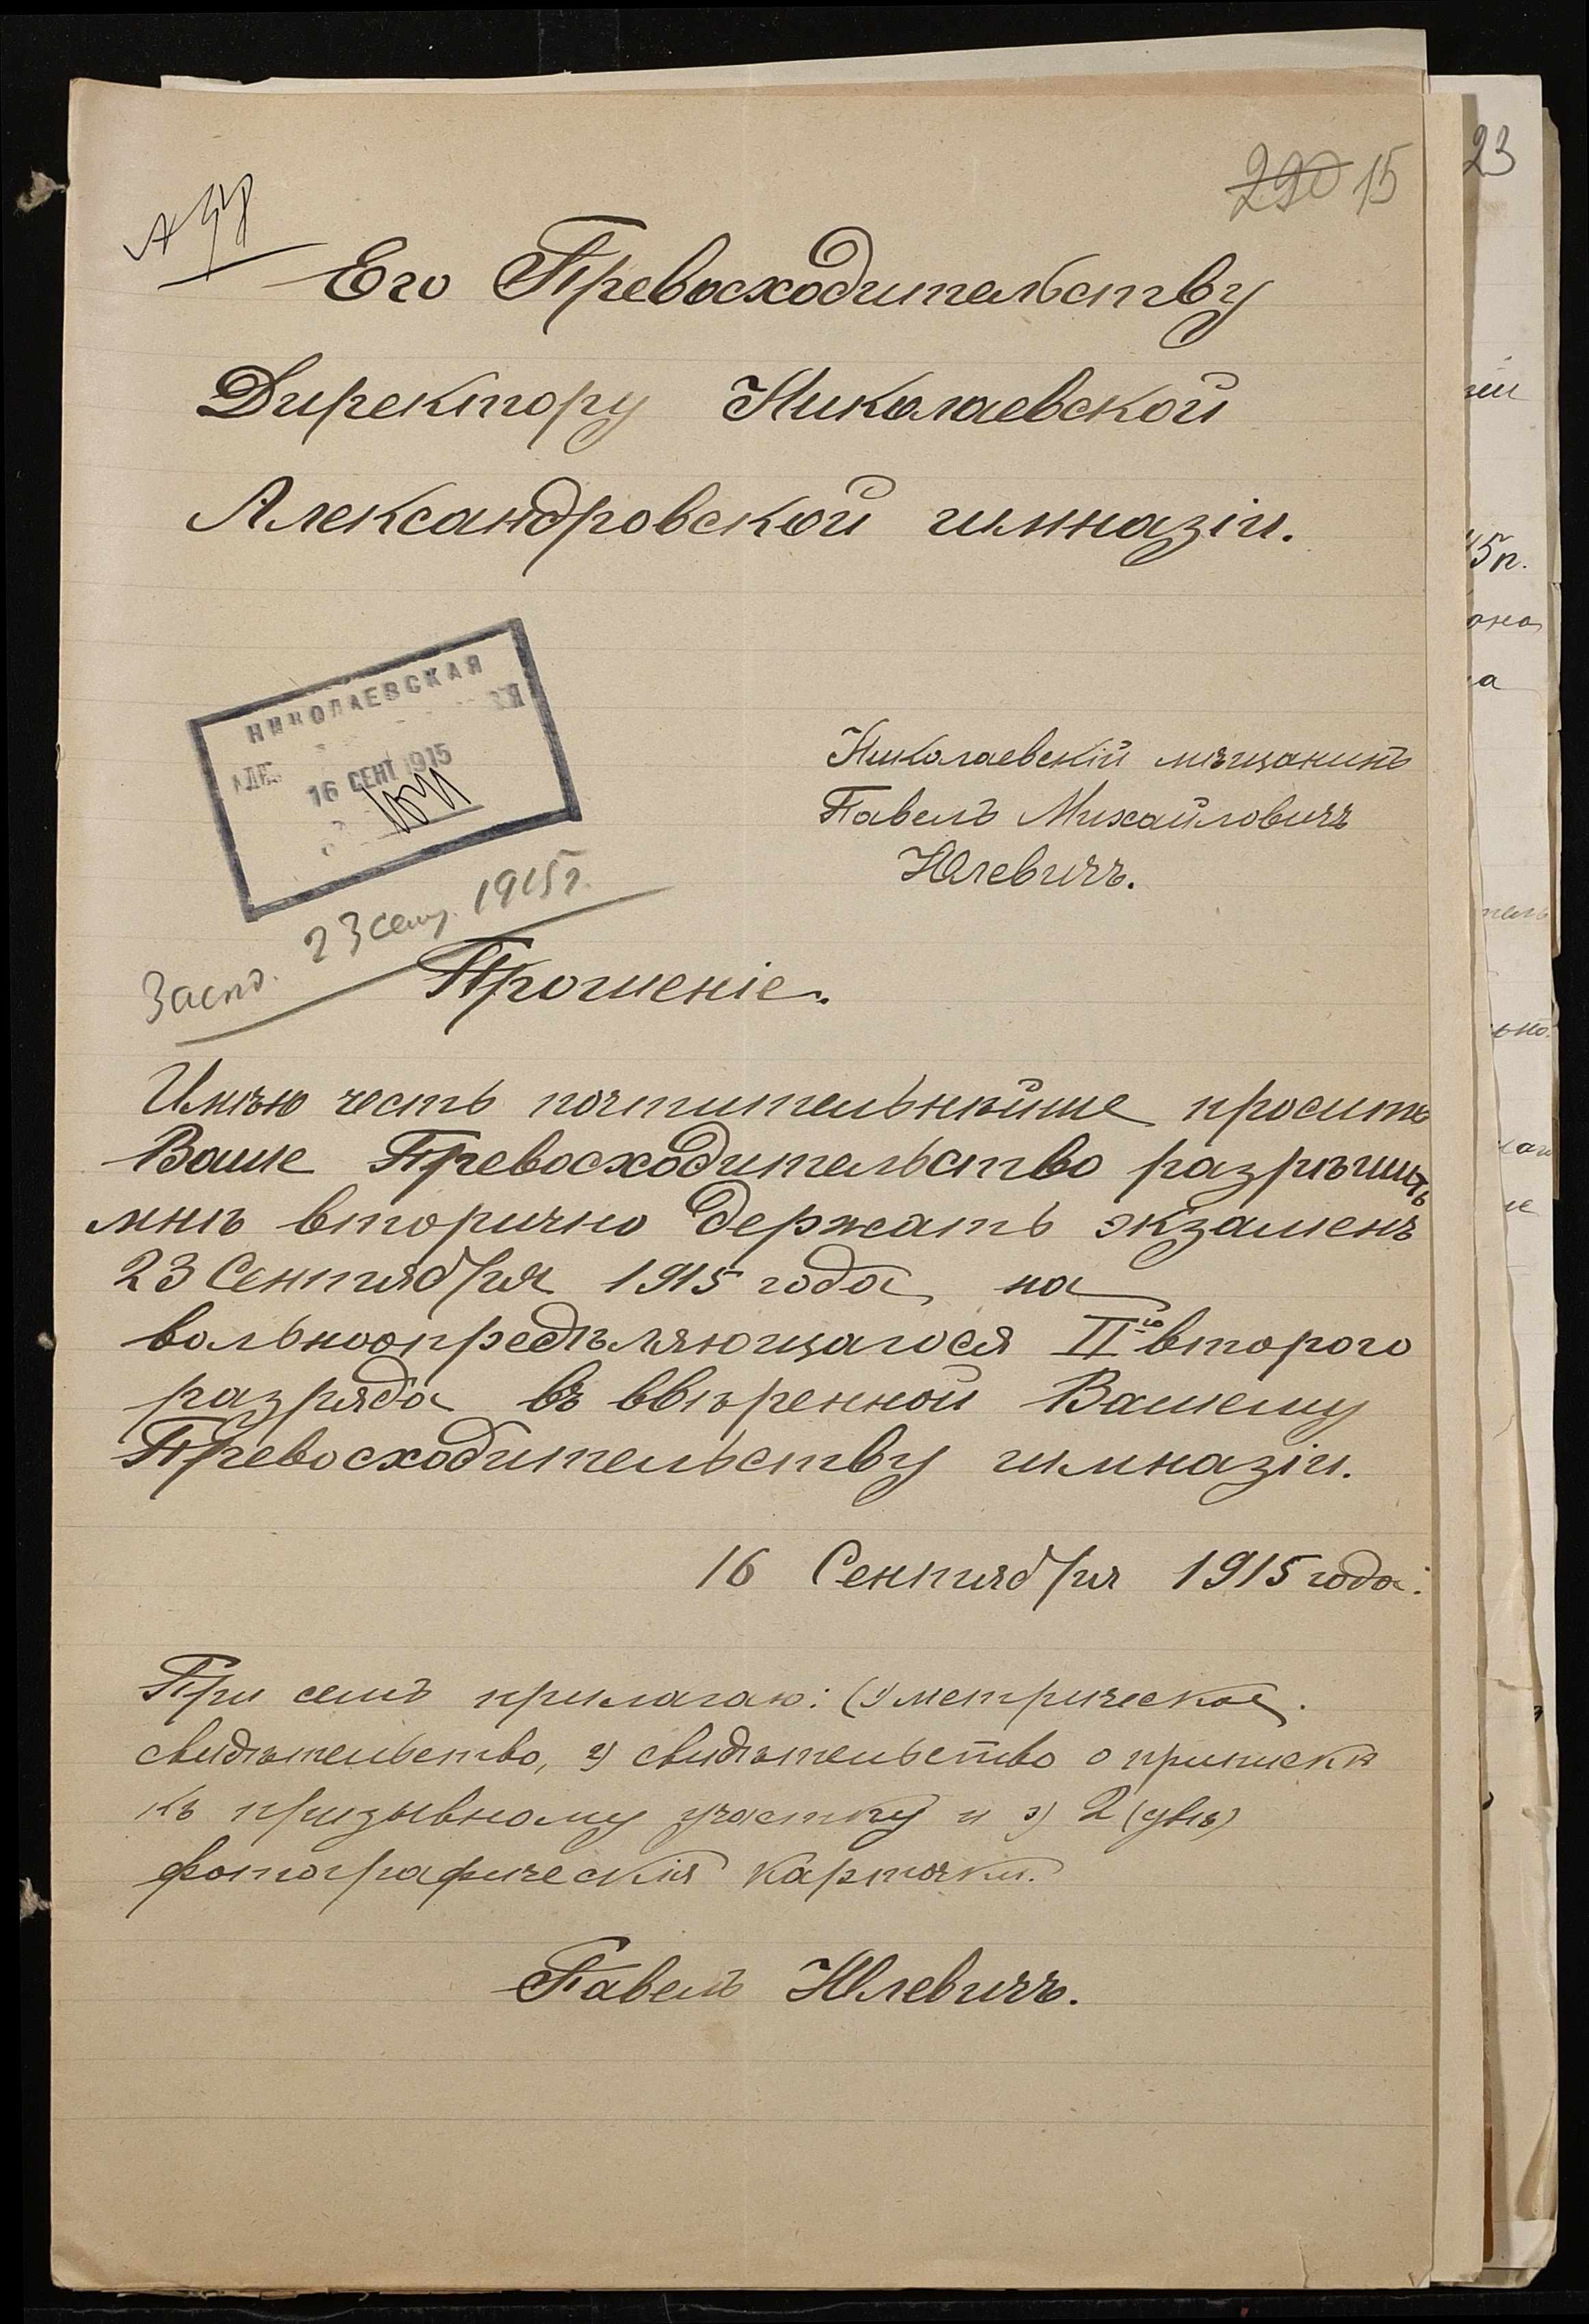 290 15
23
Его Превосходительству
Директору Николаевской
Александровской гимназіи.
НИКОЛАЕВСКАЯ
16 СЕНТ 1915
Николаевскій мѣщанинъ
Павелъ Михайловичъ
Юлевичъ.
23 сент. 1915 г.
Прошеніе.
Имѣю честь почтительнѣйше просить
Ваше Превосходительство разрѣшить
мнѣ вторично держать экзаменъ
23 Сентября 1915 года на
вольноопредѣляющагося II-го второго
разряда въ ввѣренной Вашему
Превосходительству гимназіи.
16 Сентября 1915 года.
При семъ прилагаю: 1) метрическое
свидѣтельство, 2) свидѣтельство о припискѣ
къ призывному участку и 3) 2 (двѣ)
фотографическія карточки.
Павелъ Юлевичъ.